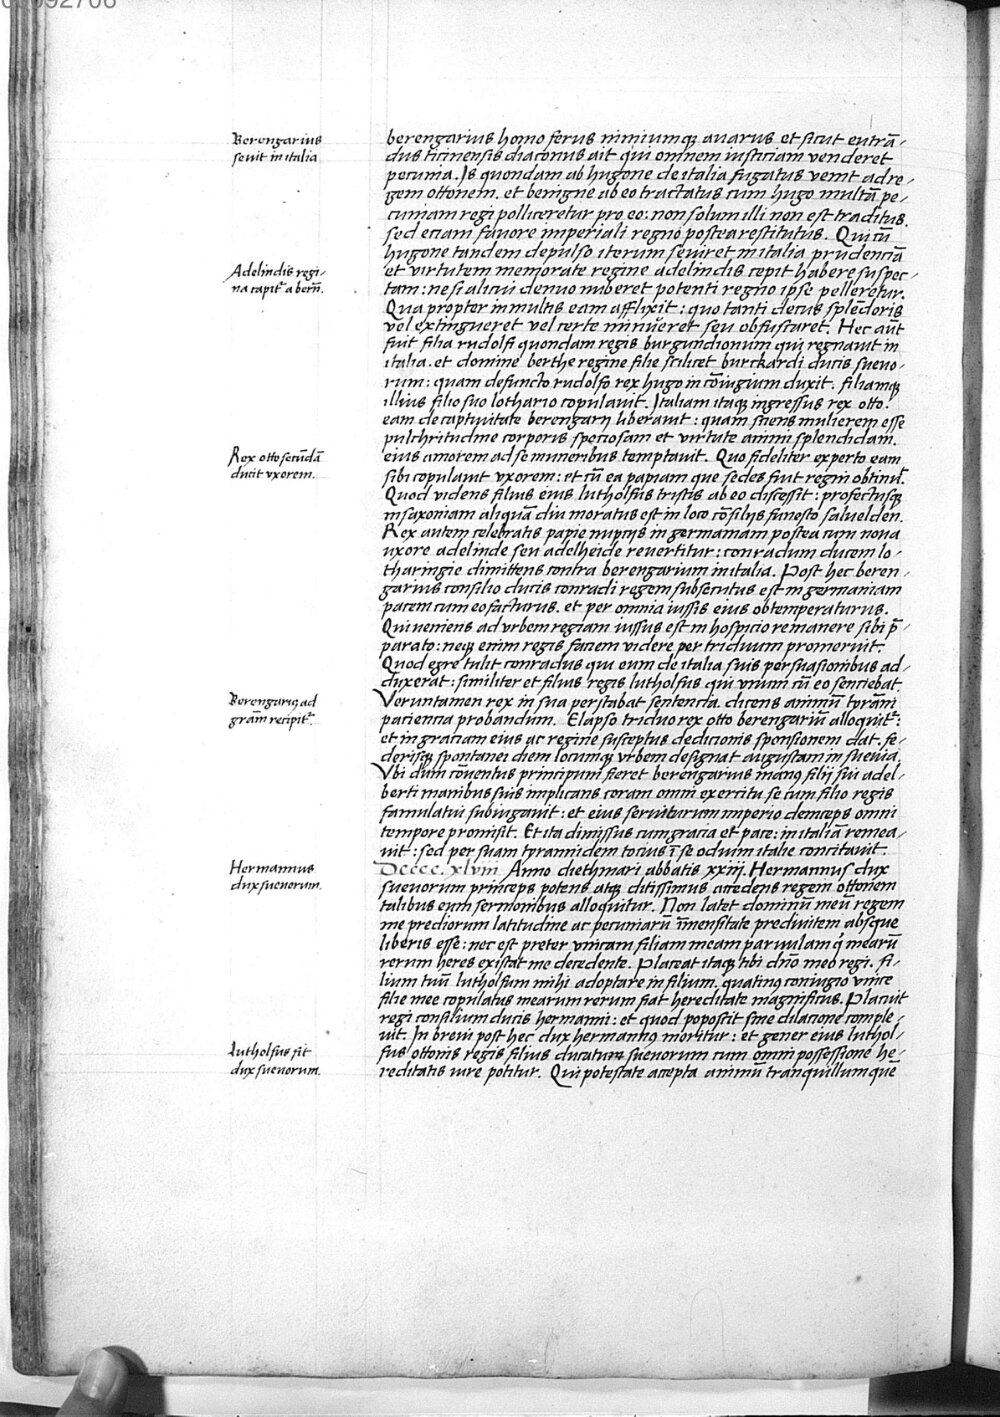 Berengarius
sevit in italia
berengarius homo ferus nimiumq; avarus et sicut eutrā-
dus ticinensis diaconus ait qui omnem iusticiam venderet
pecunia. Is quondam ab hugone de italia fugatus venit ad re-
gem ottonem. et benigne ab eo tractatus cum hugo multā pe-
cuniam regi polliceretur pro eo: non solum illi non est traditus.
sed eciam favore imperiali regno postea restitutus. Qui cū
hugone tandem depulso iterum seviret in italia prudenciā
Adelindis regi-
na capit᷑ a bern̄.
et virtutem memorate regine adelindis cepit habere suspec-
tam: ne si alicui denuo nuberet potenti regno ipse pelleretur.
Qua propter in multis eam afflixit: quo tanti decus splēdoris
vel extingueret vel certe minueret seu obfuscaret. Hec aūt
fuit filia rudolfi quondam regis burgundionum qui regnavit in
italia. et domine berthe regine filie scilicet burckardi ducis suevo-
rum: quam defuncto rudolfo rex hugo in cōiugium duxit. filiamq;
illius filio suo lothario copulavit. Italiam itaq; ingressus rex otto.
eam de captivitate berengarij liberavit: quam sciens mulierem esse
pulchritudine corporis speciosam et virtute animi splendidam.
Rex otto secūdā
ducit vxorem.
eius amorem ad se muneribus temptavit. Quo fideliter experto eam
sibi copulavit vxorem: et cū ea papiam que sedes fuit regni obtinuit.
Quod videns filius eius lutholfus tristis ab eo discessit: profectusq;
in saxoniam aliquā diu moratus est in loco cōsilijs funesto salvelden.
Rex autem celebratis papie nuptijs in germaniam postea cum nova
uxore adelinde seu adelheide revertitur: conradum ducem lo-
tharingie dimittens contra berengarium in italia. Post hec beren-
garius consilio ducis conradi regem subsecutus est in germaniam
pacem cum eo facturus. et per omnia iussis eius obtemperaturus.
Qui veniens ad vrbem regiam iussus est in hospicio remanere sibi p̄-
parato: neq; enim regis faciem videre per triduum promeruit.
Quod egre tulit conradus qui eum de italia suis persuasionibus ad-
duxerat: similiter et filius regis lutholfus qui vnum cū eo senciebat.
Berengariꝰ ad
grām recipit᷑.
Veruntamen rex in sua perstabat sentencia. dicens animū tyrāni
paciencia probandum. Elapso triduo rex otto berengariū alloquit᷑:
et in graciam eius ac regine susceptus dedicionis sponsionem dat. fe-
derisq; spontanei diem locumq; vrbem designat augustam in suevia.
Vbi dum cōventus principum fieret berengarius manꝰ filij sui adel-
berti manibus suis implicans coram omni exercitu se cum filio regis
famulatui subiugavit: et eius serviturum imperio deinceps omni
tempore promisit. Et ita dimissus cum gracia et pace: in italiā remea-
vit: sed per suam tyrannidem tocius ī se odium italie concitavit.
Hermannus
dux suevorum.
Dcccc.xlviii Anno diethmari abbatis xxiii. Hermannus dux
suevorum princeps potens atq; ditissimus accedens regem ottonem
talibus eum sermonibus alloquitur. Non latet dominū meū regem
me prediorum latitudine ac pecuniarū īmensitate predivitem absque
liberis esse: nec est preter vnicam filiam meam parvulam q̄ mearū
rerum heres existat me decedente. Placeat itaq; tibi dn̄o meo regi. fi-
lium tuū lutholfum mihi adoptare in filium. quatinꝰ coniugio vnice
filie mee copulatus mearum rerum fiat hereditate magnificus. Placuit
regi consilium ducis hermanni: et quod poposcit sine dilacione comple-
vit. In brevi post hec dux hermannꝰ moritur: et gener eius luthol-
Lutholfus fit
dux suevorum.
fus ottonis regis filius ducatum suevorum cum omni possessione he-
reditatis iure potitur. Qui potestate accepta animū tranquillum quē